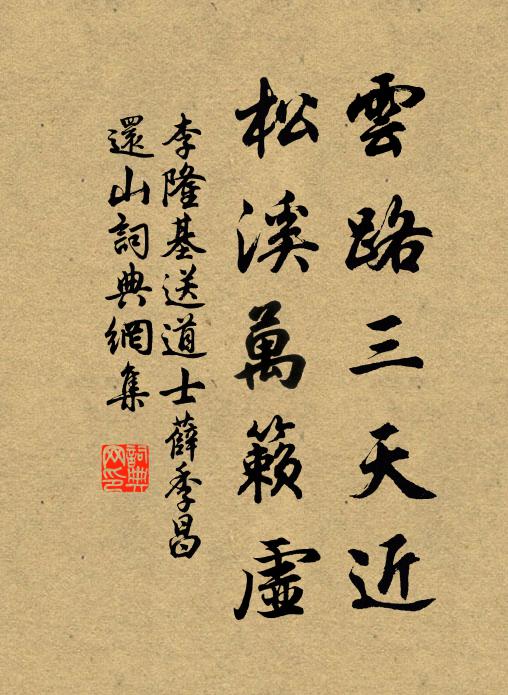 雲路三天近
松溪萬籟虛
李隆基送道士薛季昌
還山詞典網集
詞典
网印